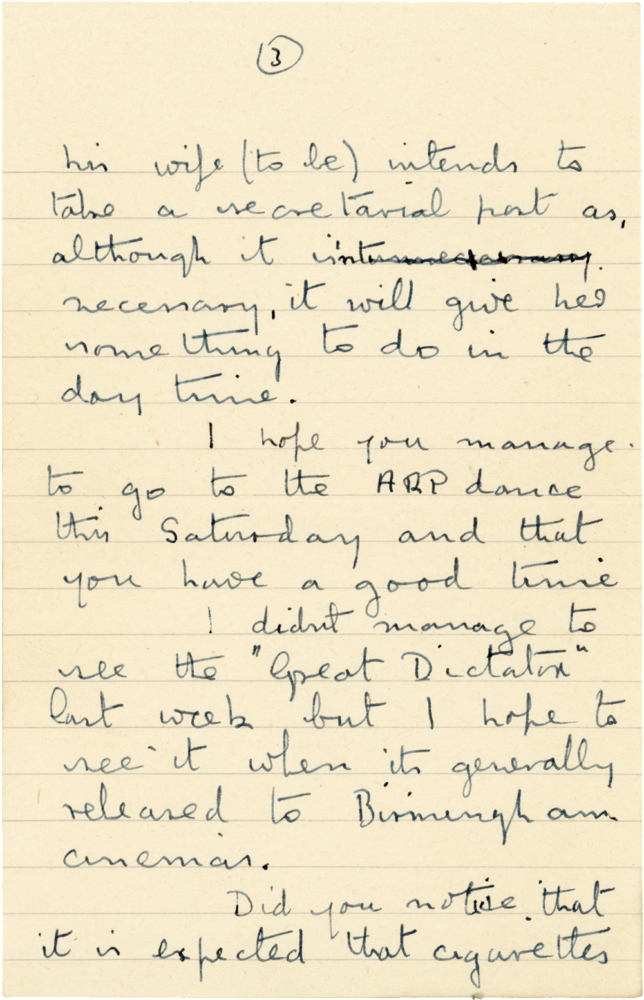 (3)
his wife (to be) intends to
take a secretarial post as,
although it isn't unnecessary
necessary, it will give her
something to do in the
day time.
I hope you manage
to go to the ARP dance
this Saturday and that
you have a good time
I didnt manage to
see the "Great Dictator"
last week but I hope to
see it when its generally
released to Birmingham
cinemas.
Did you notice that
it is expected that cigarettes